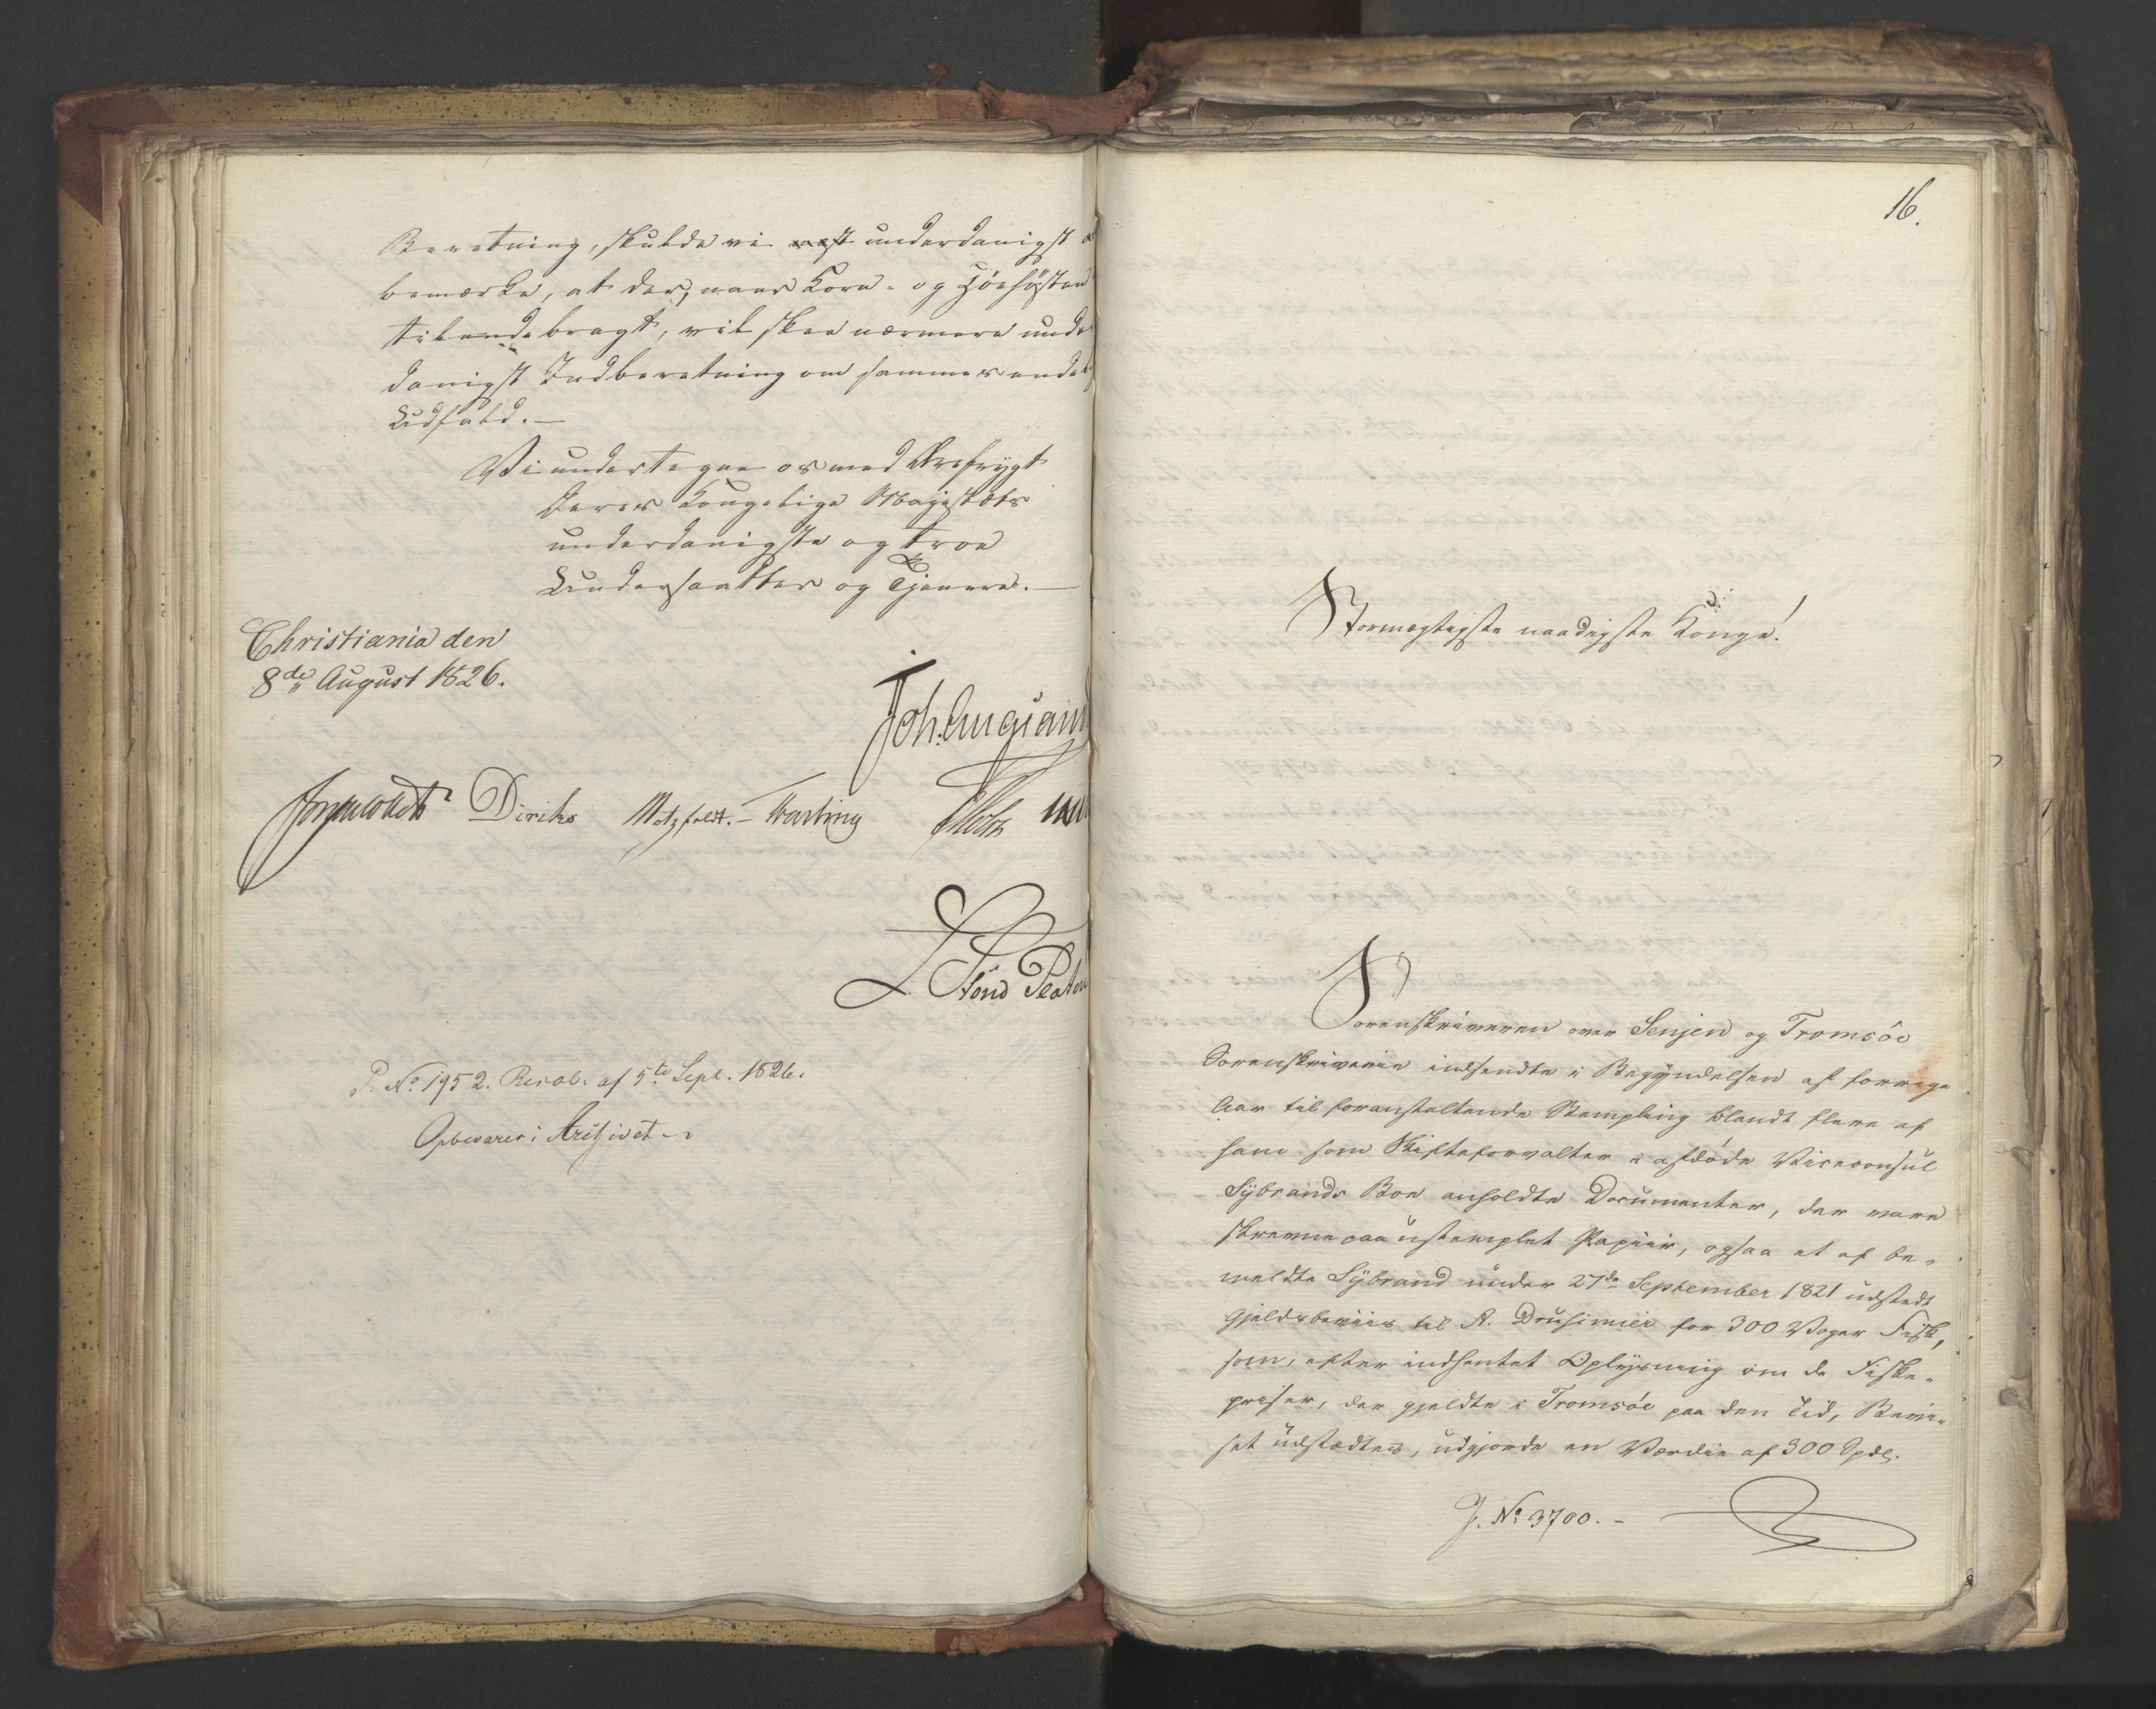 Beretning, skulde vi underdanigst
bemærke, at der, naar Korn- og Höehösten
tilendebragt, vil skee nærmere under
danigst Indberetning om sammes endel
Udfald. —
Vi undertegne os med Ærefrygt
Deres Kongelige Majestæts
underdanigste og troe
Undersaatter og Tjenere. —
Christiania den
8de August 1826.
Joh. Aug: Sand
Diriks Motzfeldt. — Vm
L. Stoud Platou
P. No 1952. Resol. af 5te Sept. 1826.
Opbevares i Archivet
16.
Stormægtigste naadigste Konge!
Sorenskriveren over Senjen og Tromsöe
Sorenskriverie indsendte i Begyndelsen af forrige
Aar til foranstaltende Stempling blandt flere af
ham som Skifteforvalter i afdöde Viceconsul
Sÿbrands Boe anholdte Documenter, der vare
skrevne paa ustemplet Papiir, ogsaa et af be-
meldte Sÿbrand under 27de September 1821 udstedt
Gjeldsbeviis til A. Drusimier for 300 Voger Fisk,
som, efter indhentet Oplysning om de Fiske-
priser, der gjeldte i Tromsöe paa den Tid, Bevi-
set udstædtes, udgjorde en Værdie af 300 Spdl.
J. No 3700. -